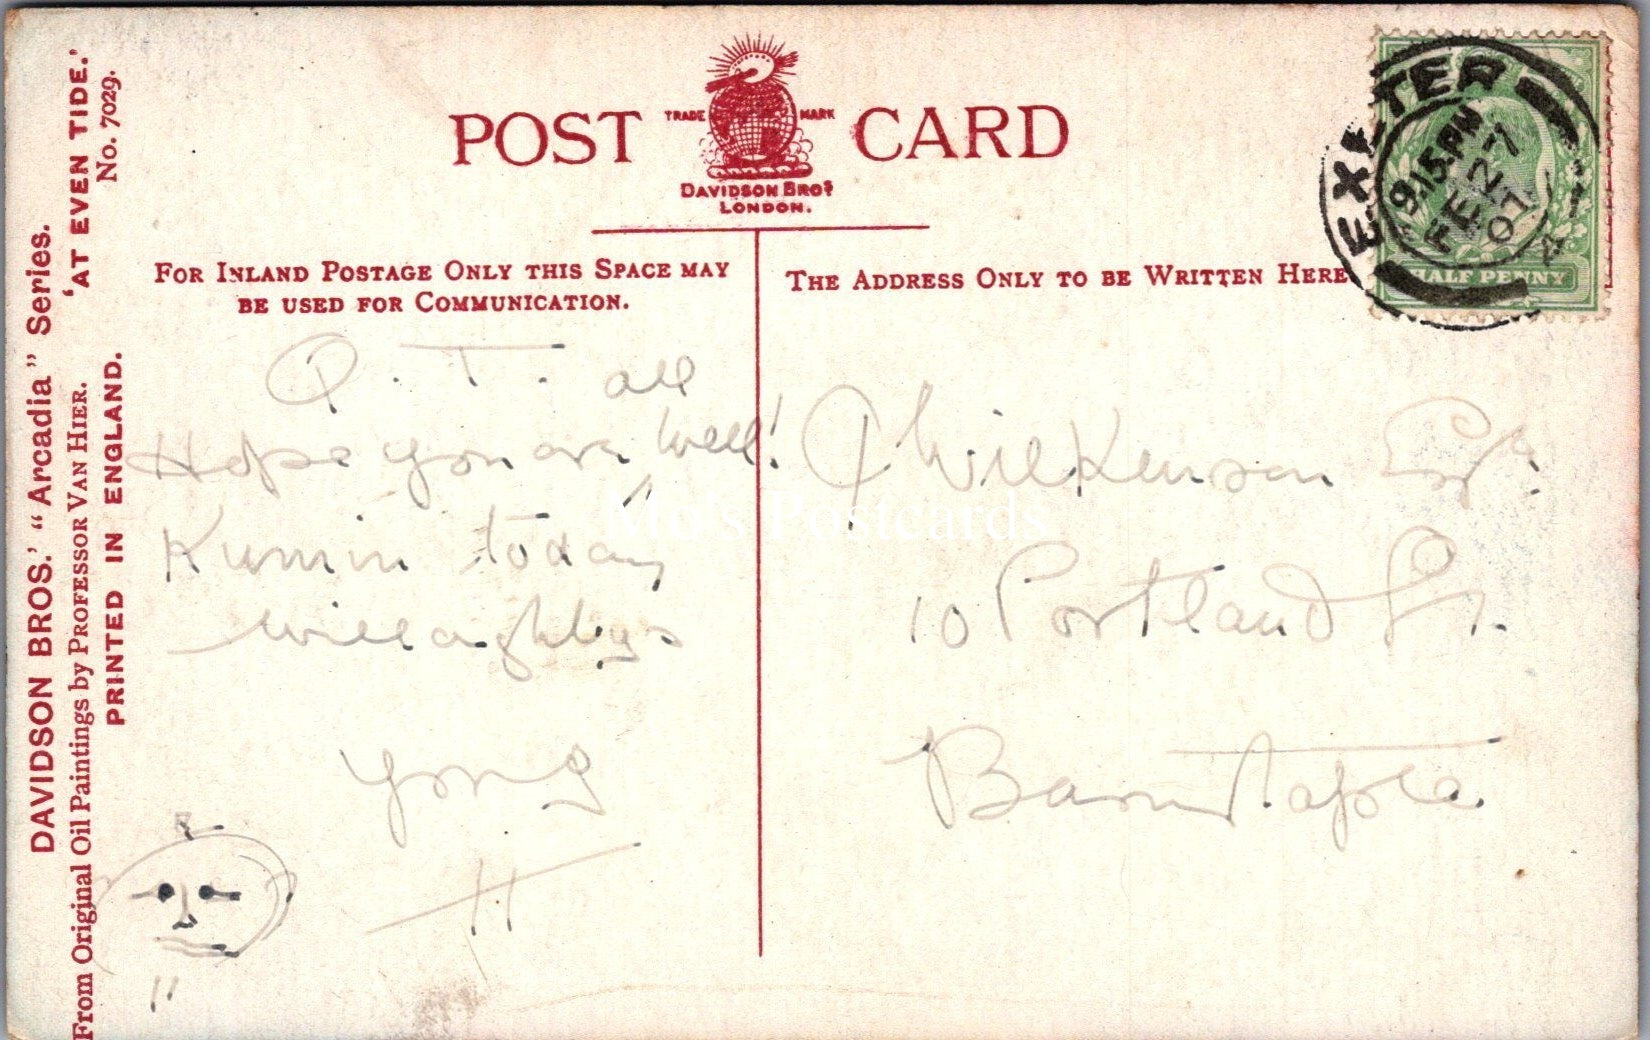 POST CARD
TRADE MARK
DAVIDSON BROS.
LONDON.
FOR INLAND POSTAGE ONLY THIS SPACE MAY
BE USED FOR COMMUNICATION.
THE ADDRESS ONLY TO BE WRITTEN HERE
DAVIDSON BROS.' "Arcadia" Series.
From Original Oil Paintings by PROFESSOR VAN HIER.
'AT EVEN TIDE.'
No. 7029.
PRINTED IN ENGLAND.
EXETER
9.15.PM
FE 27
07
HALF PENNY
. T. all
Hope you are well!
today
H
Wilkinson Esq.
10 Portland St.
Barnstaple
Mo's Postcards